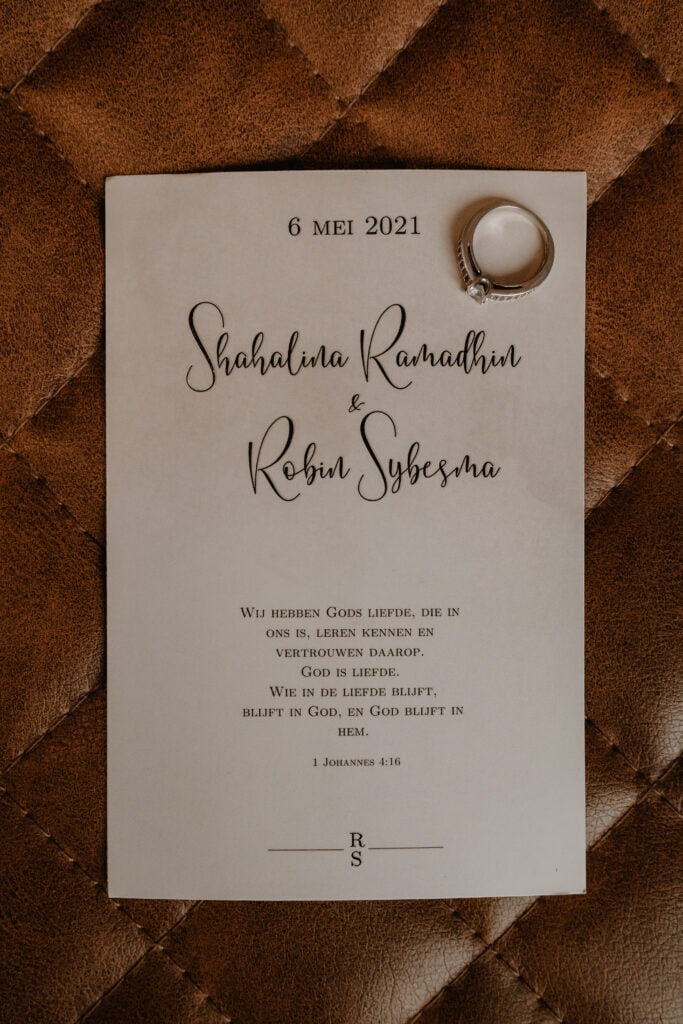 6 MEI 2021
Shahalina Ramadhin
&
Robin Sybesma
Wij hebben Gods liefde, die in
ons is, leren kennen en
vertrouwen daarop.
God is liefde.
Wie in de liefde blijft,
blijft in God, en God blijft in
hem.
1 Johannes 4:16
R
S